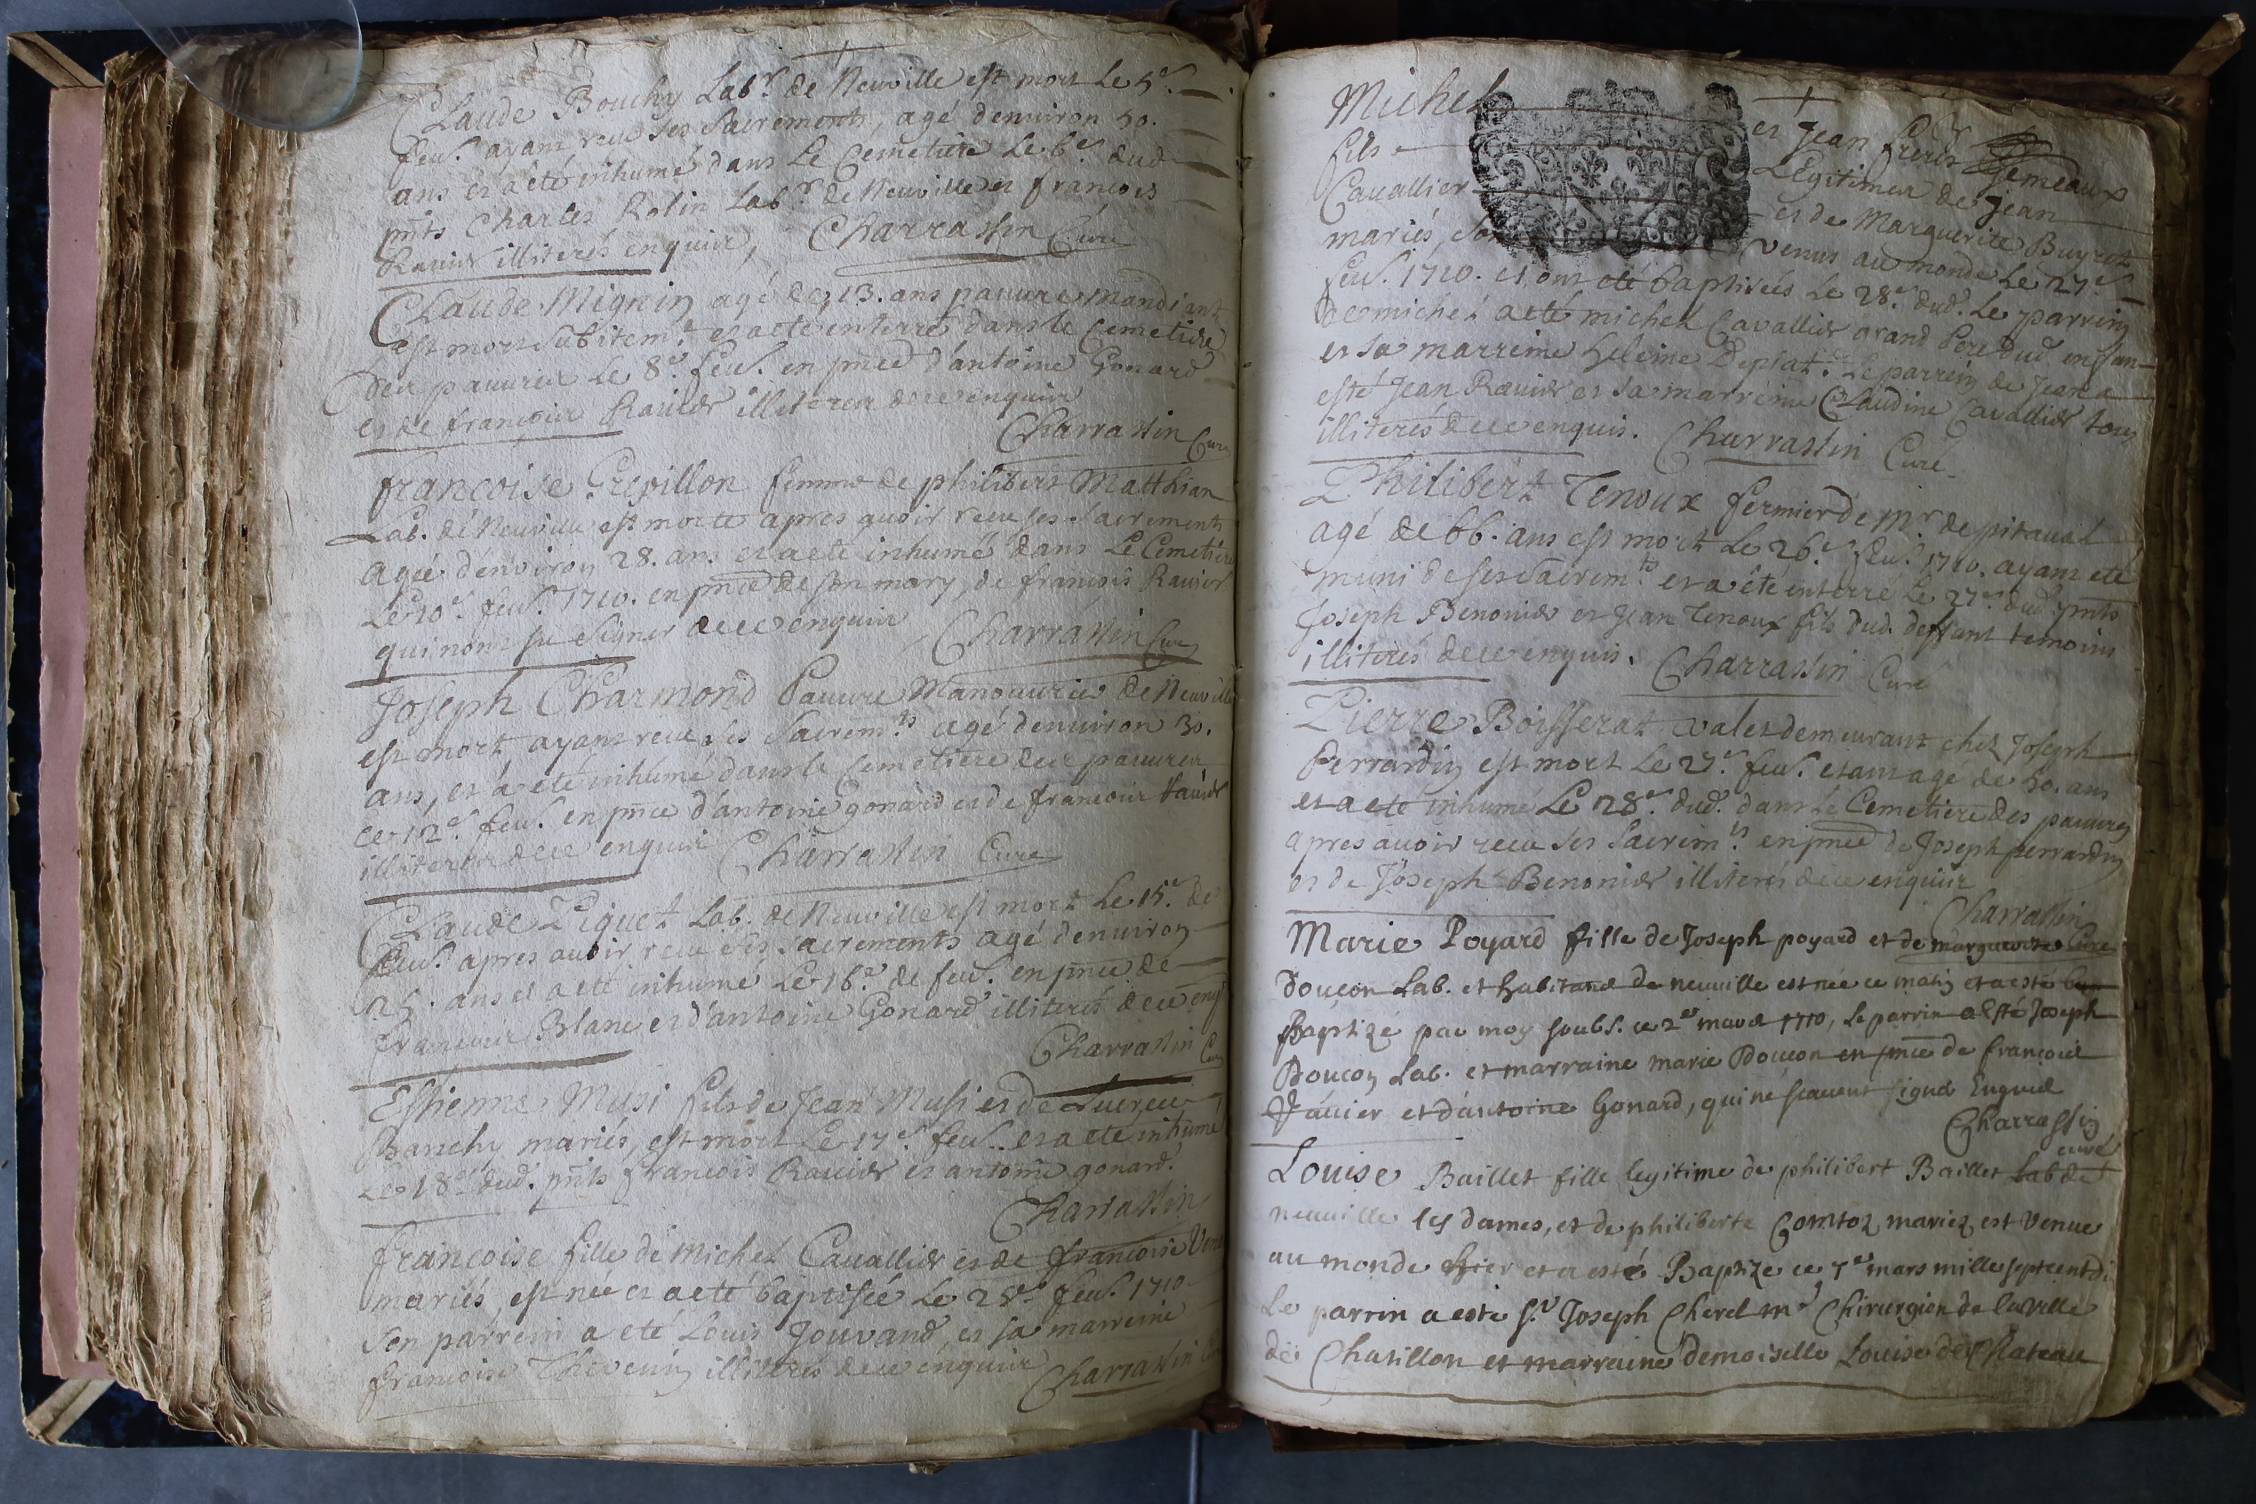 Claude Bouchy Labr. de Neuville est mort Le 5e.
feu. ayant receu ses Sacrements, agé denuiron 50.
ans et a eté inhumé dans Le Cemetiere Le 6e. dud
pnts Charles Rolin Labr. de Neuville et francois
Rauier illiterés enquis, Charrassin Curé
Claude Mignin agé de 13. ans pauure mandiant
est mort subitemt. et a eté enterré dans le Cemetiere
des pauures Le 8e. feu. en pnce d'antoine Gonard
et de francois Rauier illiteres de ce enquis
Charrassin Curé
francoise Greuillon femme de philibert Matthian
Lab. de Neuville est morte apres auoir receu ses Sacrements
agée d'enuiron 28. ans et a eté inhumé dans Le Cemetiere
Le 10e. feu. 1710. en pnce de son mary, de francois Rauier
qui n'ont su signer de ce enquis Charrassin Curé
Joseph Charmond Pauure Manouurier de Neuville
est mort ayant receu ses Sacremts. agé denuiron 30.
ans, et a eté inhumé dans le Cemetiere des pauures
ce 12e. feu. en pnce d'antoine gonard et de francois Rauier
illiteres de ce enquis Charrassin Curé
Claude Piguet Lab. de Neuville est mort Le 15e. de
feu. apres auoir receu ses Sacrements agé denuiron
25. ans et a eté inhumé Le 16e. de feu. en pnce de
francois Blanc et d'antoine Gonard illiterés de ce enqs
Charrassin Curé
Estienne Musi fils de Jean Musi et de Lucrece
Banchy mariés, est mort Le 17e. feu. et a eté inhumé
Le 18e. dud. pnts francois Rauier et antoine gonard.
Charrassin
francoise fille de Michel Cauallier et de francoise
mariés, est née et a eté baptisée Le 28e. feu. 1710
son parrein a eté Louis Jouvand, et sa marreine
francoise Theuenin illiteres de ce enquis Charrassin
Michel et Jean freres Gemeaux
fils Legitimes de Jean
Cauallier et de Marguerite Buyret
mariés, sont venus au monde Le 27e.
feu. 1710. et ont eté baptisés Le 28e. dud. Le parrein
de michel a eté michel Cavallier grand Pere dud. enfan
et sa marreine Heleine Deplat. Le parrein de Jean a
esté Jean Rauier et sa marreine Claudine Cavallier tous
illiterés de ce enquis. Charrassin Curé
Philibert Tenoux fermier de Mr. de pitaual
agé de 66. ans est mort Le 26e. feu. 1710. ayant eté
muni de ses Sacremts. et a eté enterré Le 27e. dud pnts
Joseph Benonier et Jean Tenoux fils dud. deffunt temoins
illiterés de ce enquis. Charrassin Curé
Pierre Boisserat valet demeurant chez Joseph
Perrardin est mort Le 27e. feu. etant agé de 50. ans
et a eté inhumé Le 28e. dud. dans Le Cemetiere des pauures
apres auoir receu ses Sacremts. en pnce de Joseph perrardin
et de Joseph Benonier illiterés de ce enquis
Charrassin Curé
Marie Poyard fille de Joseph poyard et de marguerite
Doucon Lab. et habitans de neuuille est née ce matin et a esté
Baptizé par moy soubs. ce 2e mars 1710, Le parrin a Esté Joseph
Doucon Lab. et marraine marie Doucon en pnce de francois
Rauier et d'antoine Gonard, qui ne scauent signer Enquis
Charrassin
curé
Louise Baillet fille legitime de philibert Baillet Lab de
neuuille les dames, et de philiberte Comtoz mariez, est Venue
au monde hier et a esté Baptize ce 7e mars mille sept cent di
Le parrin a este Sr. Joseph Cherel mr. Chirurgien de la Ville
de Chatillon et marraine demoiselle Louise de Chateau